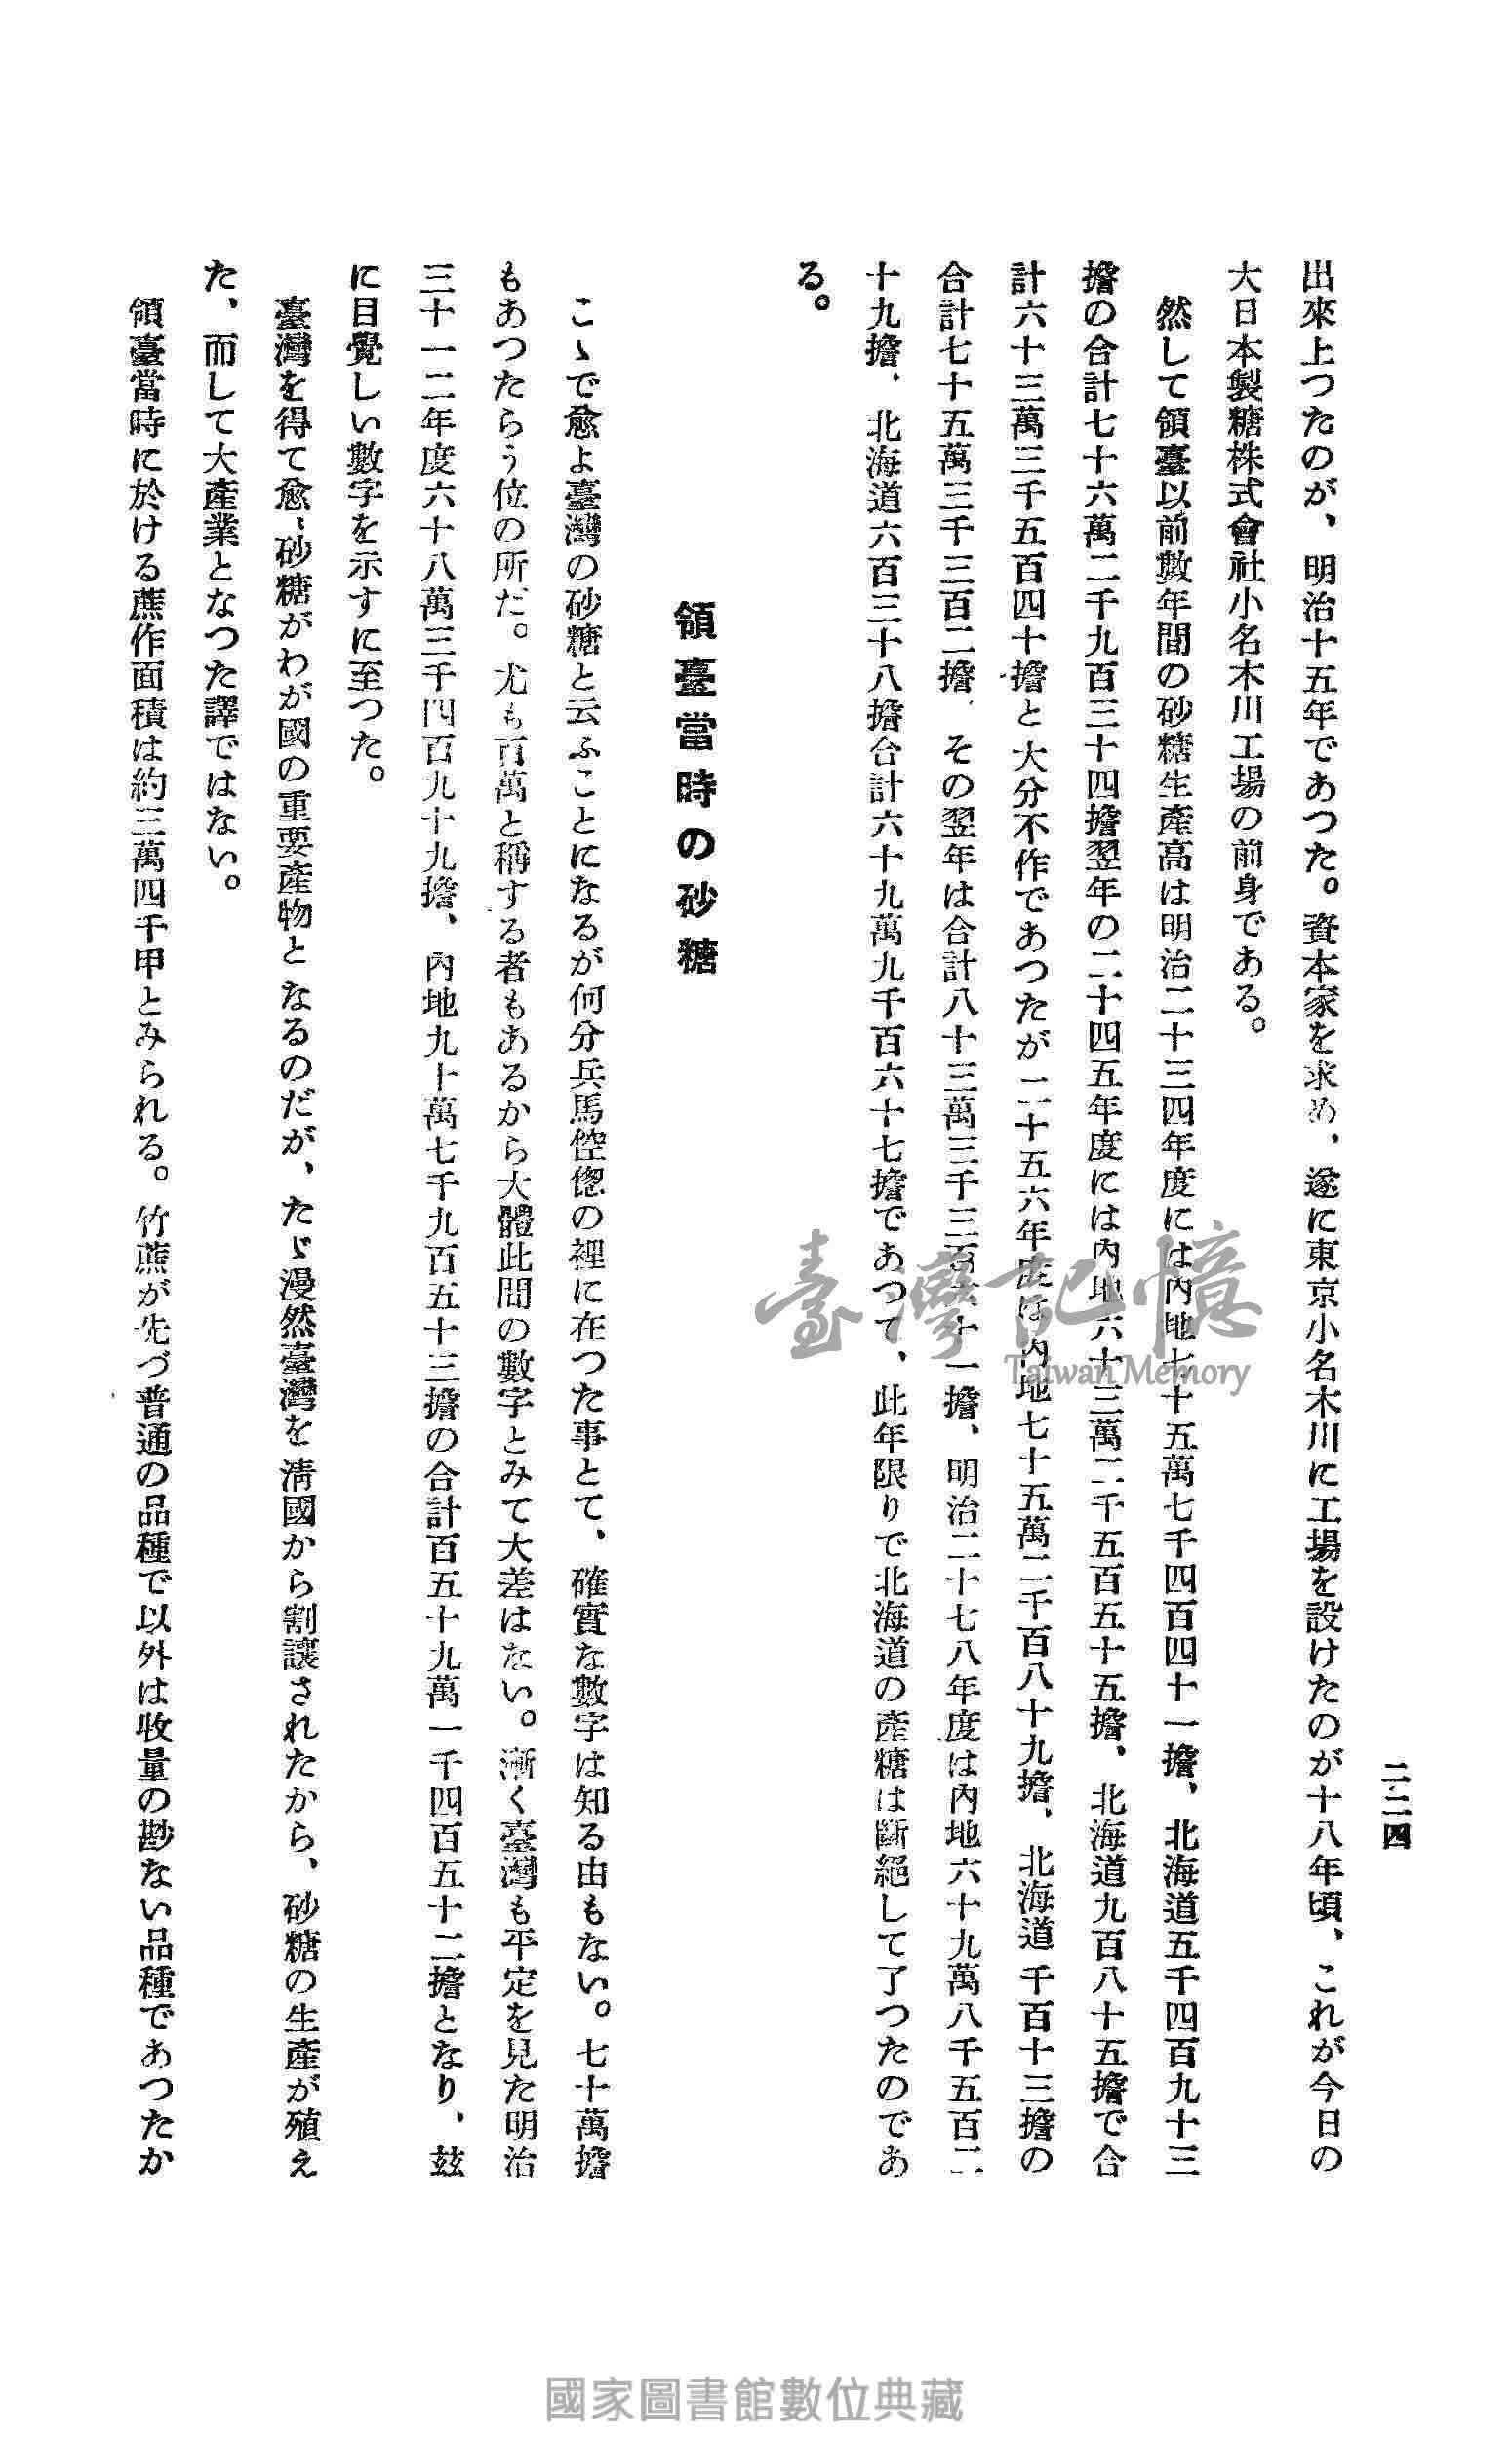 二二四
出來上つたのが、明治十五年であつた。資本家を求め、遂に東京小名木川に工場を設けたのが十八年頃、これが今日の
大日本製糖株式會社小名木川工場の前身である。
然して領臺以前數年間の砂糖生產高は明治二十三四年度には內地七十五萬七千四百四十一擔、北海道五千四百九十三
擔の合計七十六萬二千九百三十四擔翌年の二十四五年度には內地六十三萬二千五百五十五擔、北海道九百八十五擔で合
計六十三萬三千五百四十擔と大分不作であつたが二十五六年度は內地七十五萬二千百八十九擔、北海道千百十三擔の
合計七十五萬三千三百二擔、その翌年は合計八十三萬三千三百六十一擔、明治二十七八年度は內地六十九萬八千五百二
十九擔、北海道六百三十八擔合計六十九萬九千百六十七擔であつて、此年限りで北海道の產糖は斷絕して了つたのであ
る。
領臺當時の砂糖
こゝで愈よ臺灣の砂糖と云ふことになるが何分兵馬倥偬の裡に在つた事とて、確實な數字は知る由もない。七十萬擔
もあつたらう位の所だ。尤も百萬と稱する者もあるから大體此間の數字とみて大差はない。漸く臺灣も平定を見た明治
三十一二年度六十八萬三千四百九十九擔、內地九十萬七千九百五十三擔の合計百五十九萬一千四百五十二擔となり、玆
に目覺しい數字を示すに至つた。
臺灣を得て愈、砂糖がわが國の重要產物となるのだが、たゞ漫然臺灣を淸國から割讓されたから、砂糖の生產が殖え
た、而して大產業となつた譯ではない。
領臺當時に於ける蔗作面積は約三萬四千甲とみられる。竹蔗が先づ普通の品種で以外は收量の尠ない品種であつたか
臺灣記憶
Taiwan Memory
國家圖書館數位典藏